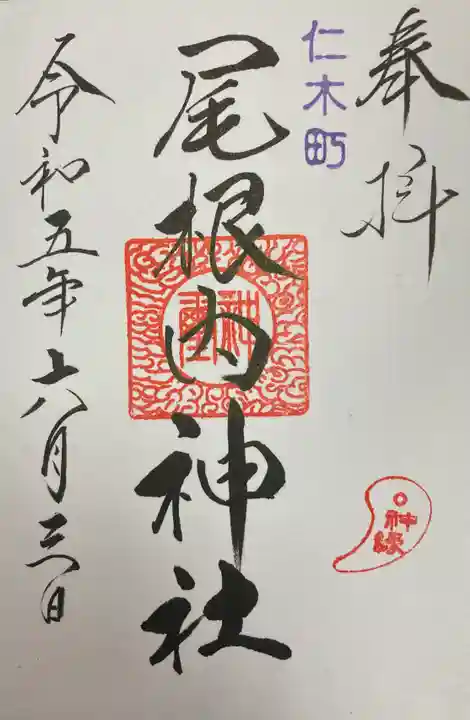 奉拝
仁木町
尾根内神社
令和五年六月三日
神縁